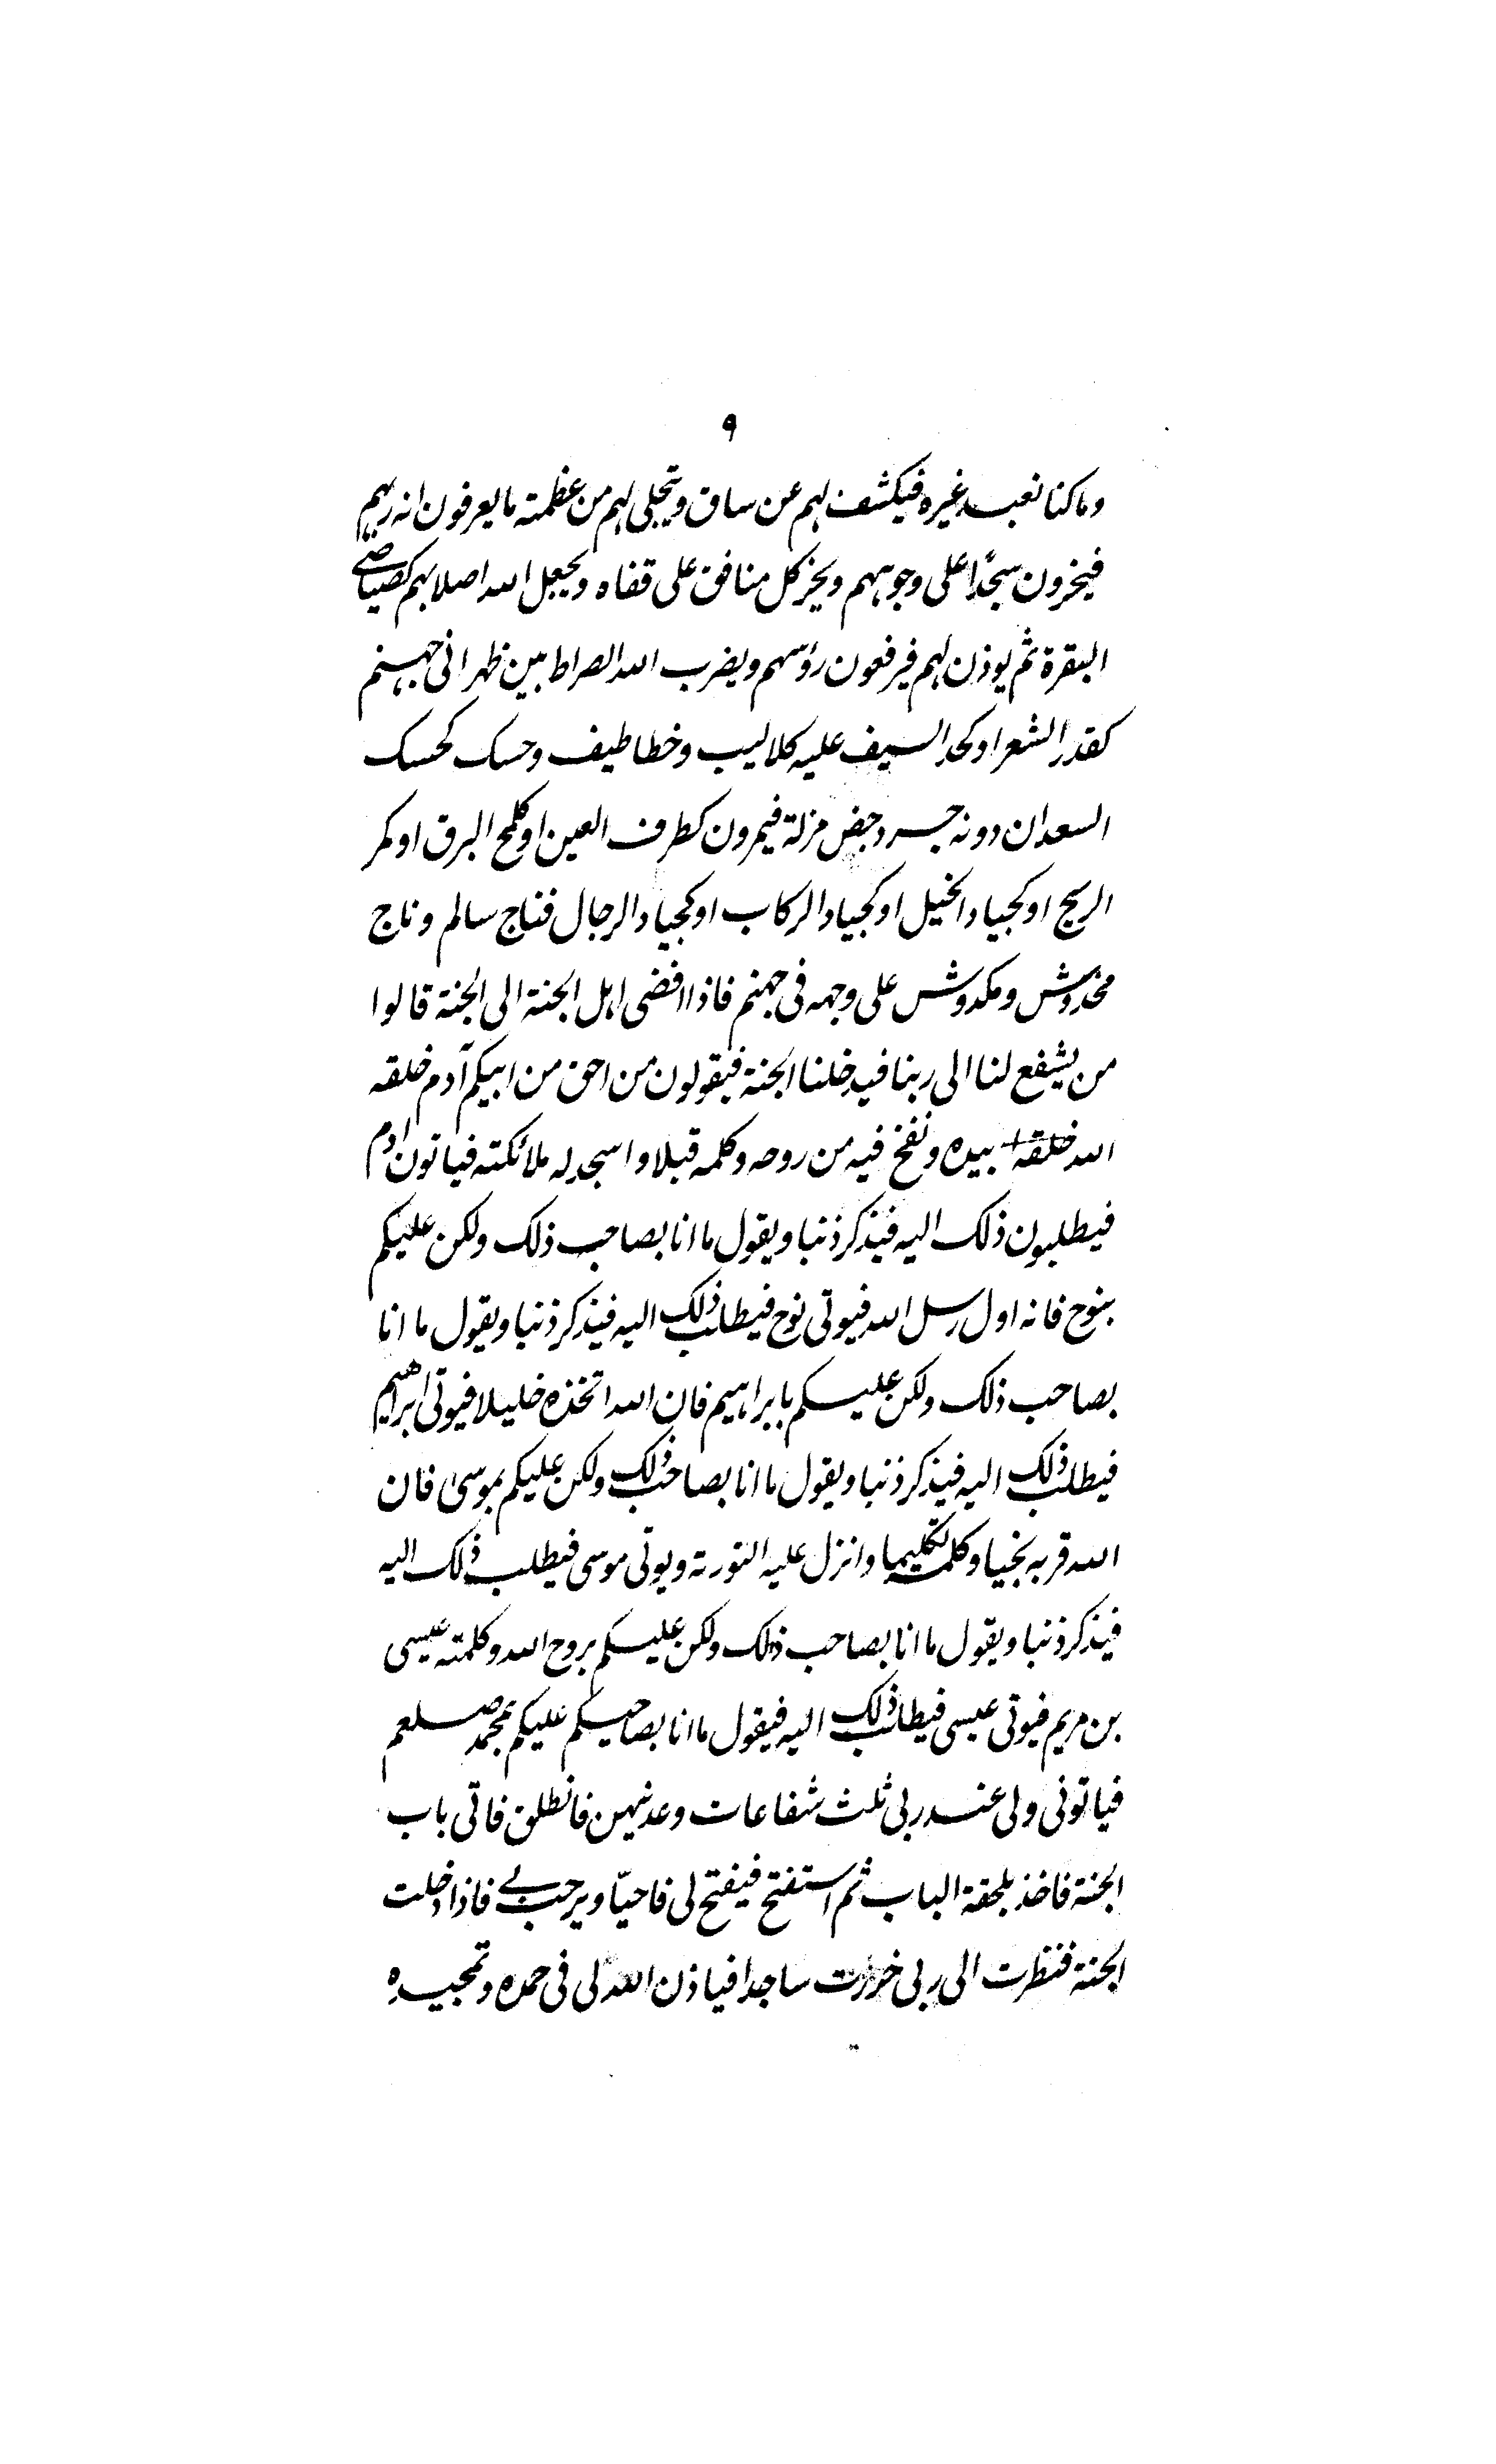 ٩
وما كنا نعبد غيره فيكشف لهم عن ساق ويتجلى لهم من عظمته ما يعرفون انه ربهم
فيخرون سجدًا على وجوههم ويخر كل منافق على قفاه ويجعل الله اصلابهم كصياصي
البقرة ثم يوذن لهم فيرفعون رؤسهم ويضرب الله الصراط بين ظهرانى جهنم
كقدر الشعر او كحد السيف عليه كلاليب وخطاطيف وحسك كحسك
السعدان دونه جسر دحض مزلة فيمرون كطرف العين او كلمح البرق او كمر
الريح او كجياد الخيل او كجياد الركاب او كجياد الرجال فناج سالم وناج
مخدوش ومكدوش على وجهه فى جهنم فاذا افضى اهل الجنة الى الجنة قالوا
من يشفع لنا الى ربنا فيدخلنا الجنة فيقولون من احق من ابيكم آدم خلقه
الله خلقه بيده ونفخ فيه من روحه وكلمه قبلا واسجد له ملائكته فياتون ادم
فيطلبون ذلك اليه فيذكر ذنبا ويقول ما انا بصاحب ذلك ولكن عليكم
بنوح فانه اول رسل الله فيوتى نوح فيطلب ذلك اليه فيذكر ذنبا ويقول ما انا
بصاحب ذلك ولكن عليكم بابراهيم فان الله اتخذه خليلا فيوتى ابراهيم
فيطلب ذلك اليه فيذكر ذنبا ويقول ما انا بصاحب ذلك ولكن عليكم بموسىٰ فان
الله قربه نجيا وكلمه تكليما وانزل عليه التورته ويوتى موسى فيطلب ذلك اليه
فيذكر ذنبا ويقول ما انا بصاحب ذلك ولكن عليكم بروح الله وكلمته عيسى
بن مريم فيوتى عيسى فيطلب ذلك اليه فيقول ما انا بصاحبكم عليكم بمحمد صلعم
فياتونى ولى عند ربى ثلث شفاعات وعدنيهن فانطلق فاتى باب
الجنة فاخذ بلحقة الباب ثم استفتح فيفتح لى فاحيّا ويرحب بى فاذا دخلت
الجنة فنظرت الى ربى خررت ساجدا فياذن الله لى فى حمده وتمجيده